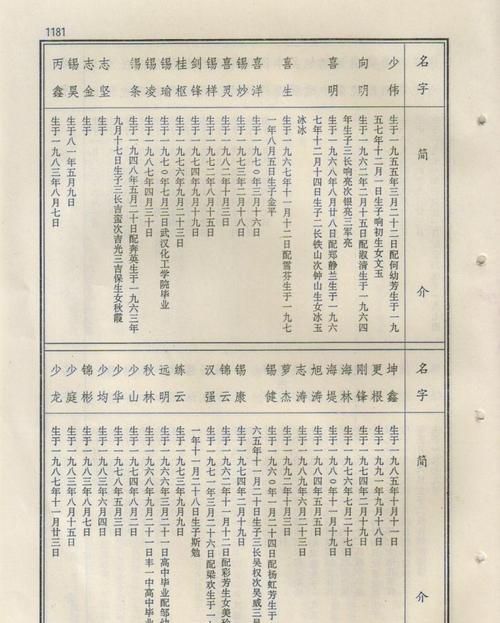 1181
名字
少伟
向明
喜明
喜生
喜洋
锡炒
喜灵
锡样
剑锋
桂枢
锡瑜
锡凌
锡条
志坚
志金
锡昊
丙鑫
简介
生于一九五五年三月二十二日配何幼芳生于一九
五七年十二月一日生子啊初生女文玉
生于一九六二年二月十五日配淑清生于一九六四
年生子三长响亮次银亮三军亮
生于一九六八年八月廿八日配郑静兰生于一九六
七年十二月十四日生子二长铁山次钟山生女冰玉
冰冰
生于一九六七年十一月十二日配雪芬生于一九七
一年八月五日生子金平
生于一九七〇年三月十六日
生于一九七三年二月十八日
生于一九八二年十月三日
生于一九七二年八月十五日
生于一九七四年九月十九日
生于一九七六年二月二十三日
生于一九七〇年七月三日武汉化工学院毕业
生于一九八七年四月三十日
生于一九四八年五月二十日配奔英生于一九六三年
九月十七日生子三长吉蛮次吉光三吉保生女秋霞
生于
生于
生于八一年五月九日
生于一九八三年八月七日
名字
坤鑫
更根
刚锋
海林
海堤
旭涛
志涛
萝杰
锡健
锡康
锦云
汉强
练云
远明
秋林
少山
少华
少均
锦彬
少庭
少龙
简介
生于一九八五年十月十一日
生于一九九一年九月十八日
生于一九七四年二月十日
生于一九七六年七月二十七日
生于一九八〇年十一月十九日
生于一九八四年五月五日
生于一九九〇年六月二十三日
生于一九九二年十月三日
生于一九六〇年一月二十四日配杨虹芳生于一
六五年十一月二十日生子三长吴权次吴威三吴
生于一九七四年二月十九日
生于一九六二年十一月十二日配彩芳生女美珍
生于一九七一年三月二十六日配梁欢生于一
一年十一月二十八日生子斯勉
生于一九七三年九月九日
生于一九六八年三月二十一日高中毕业配邹幼
生于一九六八年九月二十一日丰一中高中毕业
生于一九七四年八月二日
生于一九七八年五月三日
生于一九八三年六月四日
生于一九八三年八月七日
生于一九八三年八月十五日
生于一九八七年十一月廿三日